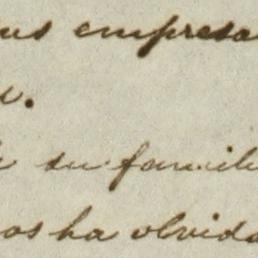 us empresa
.
su famili
os ha olvida